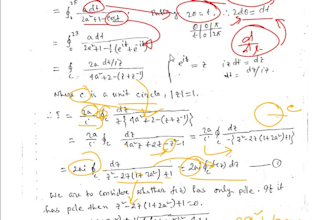 = ∮₀^2π a dt / 2a²+1-cost   Putting 2θ = t ∴ 2dθ = dt
= ∮₀^2π a dt / 2a²+1-½(e^it+e^-it)
I = ∮c 2a dz/iz / 4a²+2-(z+z⁻¹)   e^it = z   iz dt = dz   dt = dz/iz
Where c is a unit circle, |z|=1.
∴ I = 2a/i ∮c dz / z{4a²+2-(z+z⁻¹)}   c
= 2a/i ∮c dz / 4a²z+2z-z²-1 = 2a/i ∮c dz / -{z²-2z(1+2a²)+1}
= 2ai ∮c dz / z²-2z(1+2a²)+1 = 2ai ∮c f(z) dz — ①
We are to consider whether f(z) has only pole. If it
has pole then z²-2z(1+2a²)+1=0.